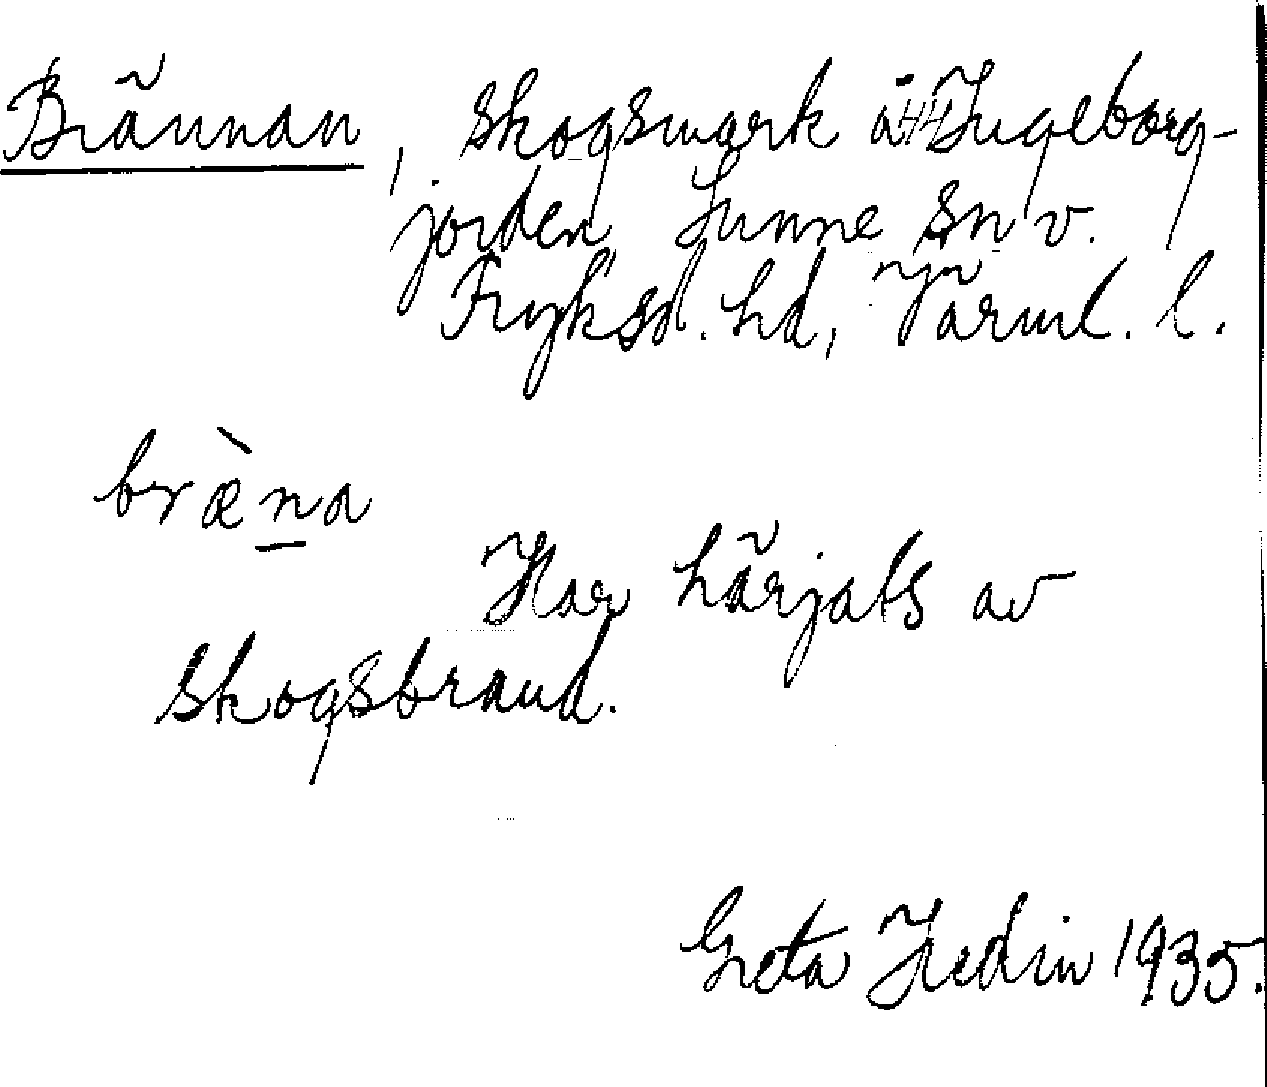 Brännan, skogsmark å Ingeborg-
jorden, Sunne sn v.
Fryksd. hd, Värml. l.
bræ̀n̲a
Har härjats av
skogsbrand.
Greta Hedin 1935.